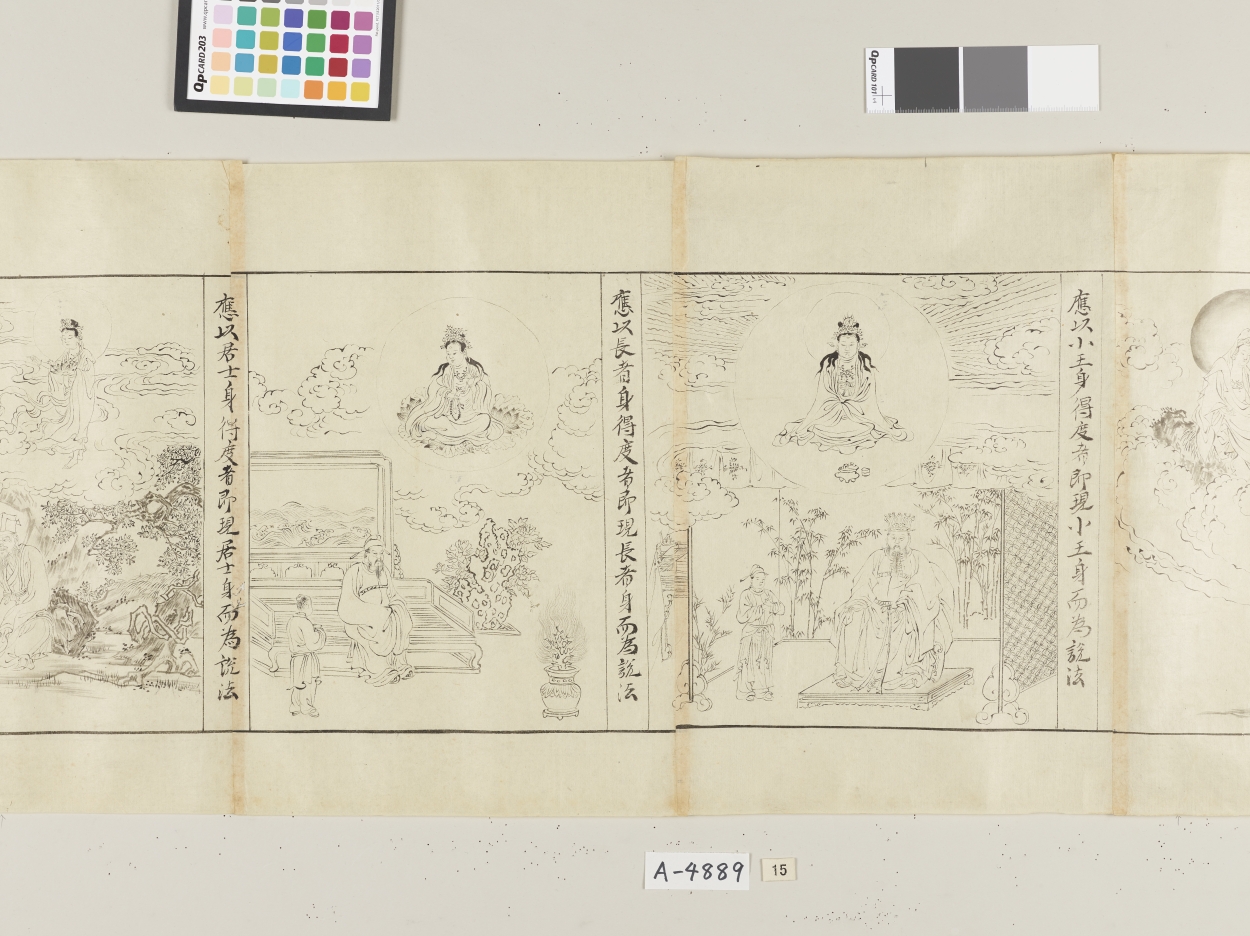 應以小王身得度者即現小王身而為說法
應以長者身得度者即現長者身而為說法
應以居士身得度者即現居士身而為說法
QPCARD 203
QPCARD 101
A-4889
15